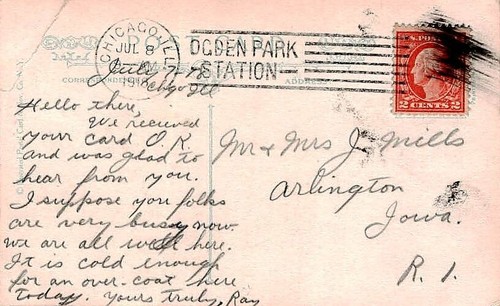 POST CARD
CHICAGO, ILL.
JUL 8
1918
OGDEN PARK
STATION
U.S. POS
2 CENTS 2
CORRESPONDENCE
ADDRESS
July 7-18
Chgo Ill
Hello there,
We received
your card O.K.
and was glad to
hear from you.
I suppose you folks
are very busy now.
we are all well here.
It is cold enough
for an over-coat here
today. Yours truly, Ray
Mr & Mrs J. Mills
Arlington
Iowa.
R. 1.